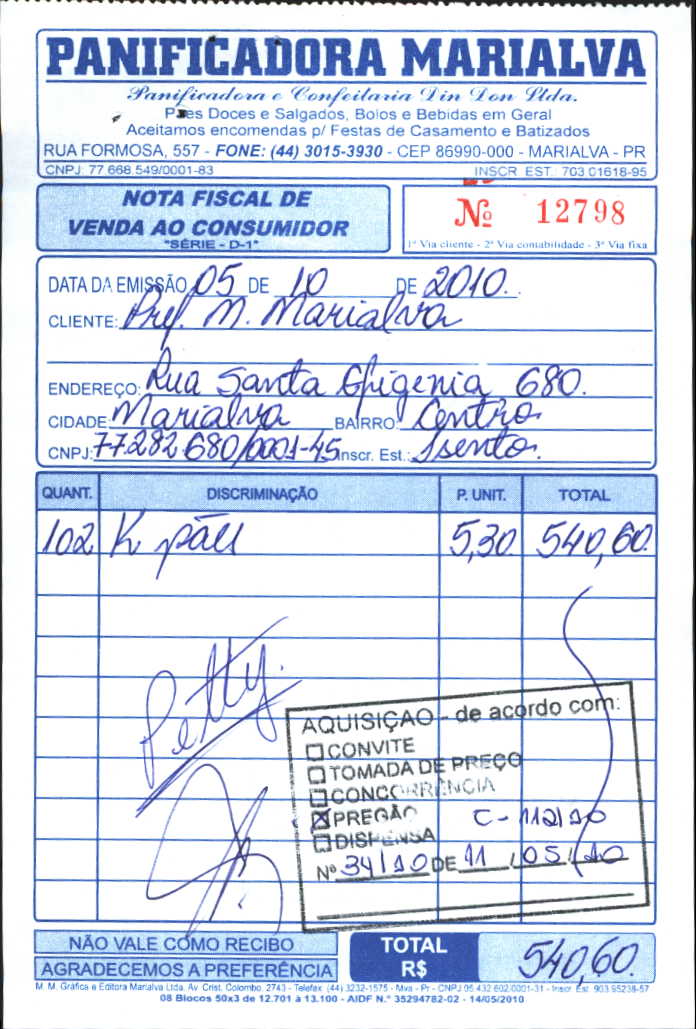 PANIFICADORA MARIALVA
Panificadora e Confeitaria Din Don Ltda.
Pães Doces e Salgados, Bolos e Bebidas em Geral
Aceitamos encomendas p/ Festas de Casamento e Batizados
RUA FORMOSA, 557 - FONE: (44) 3015-3930 - CEP 86990-000 - MARIALVA - PR
CNPJ: 77 668 549/0001-83 INSCR. EST. 703 01618-95
NOTA FISCAL DE
VENDA AO CONSUMIDOR
"SÉRIE - D-1"
Nº 12798
1ª Via cliente - 2ª Via contabilidade - 3ª Via fixa
DATA DA EMISSÃO 05 DE 10 DE 2010.
CLIENTE: Pref. M. Marialva
ENDEREÇO: Rua Santa Efigenia 680.
CIDADE: Marialva BAIRRO: Centro
CNPJ: 77.282.680/0001-45 Inscr. Est.: Isento.
QUANT. DISCRIMINAÇÃO P. UNIT. TOTAL
102 K pães 5,30 540,60.
Petty.
AQUISIÇÃO - de acordo com:
CONVITE
TOMADA DE PREÇO
CONCORRÊNCIA
X PREGÃO C-112/10
DISPENSA
Nº 34/10 DE 11 / 05 / 10
NÃO VALE COMO RECIBO
AGRADECEMOS A PREFERÊNCIA
TOTAL
R$ 540,60.
M. M. Gráfica e Editora Marialva Ltda. Av. Crist. Colombo, 2743 - Telefax: (44) 3232-1575 - Mva - Pr - CNPJ 05 432 602/0001-31 - Inscr. Est. 903.95238-57
08 Blocos 50x3 de 12.701 à 13.100 - AIDF N.º 35294782-02 - 14/05/2010